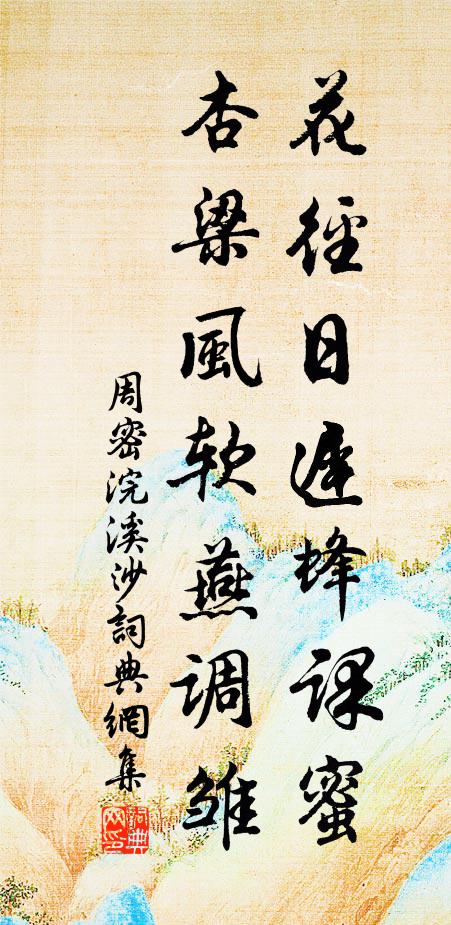 花徑日遲蜂課蜜
杏梁風軟燕調雛
周密浣溪沙詞典網集